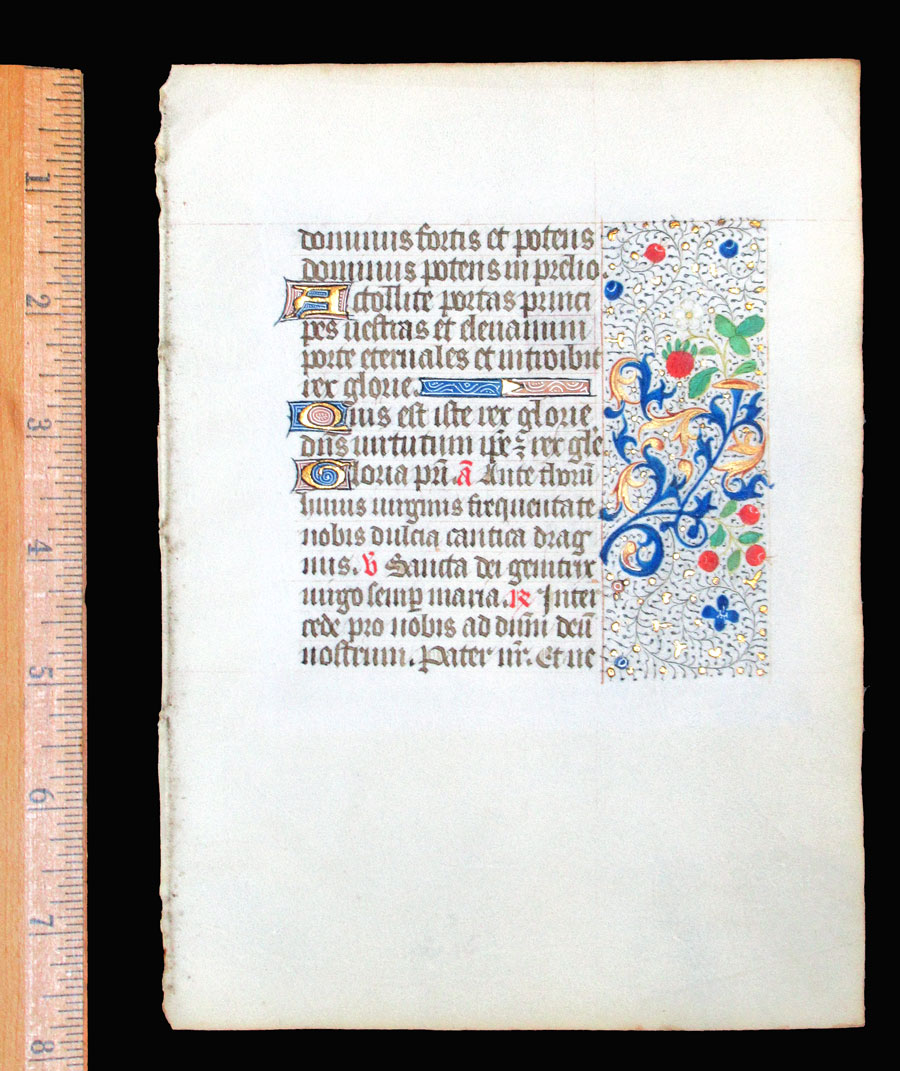 dominus fortis et potens
dominus potens in prelio.
Actollite portas princi
pes uestras et eleuamini
porte eternales et introibit
rex glorie.
Quis est iste rex glorie
dn̄s uirtutum ip̄e ē rex gl̄e.
Gloria pr̄i. ā Ante thorū
huius uirginis frequentate
nobis dulcia cantica drag
mis. v̄ Sancta dei genitrix
uirgo semp̱ maria. R̄ Inter
cede pro nobis ad dn̄m deū
nostrum. Pater nr̄. Et ne
1
2
3
4
5
6
7
8